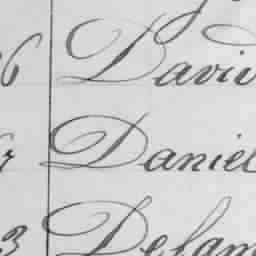 6 David
Daniel
3 Delam